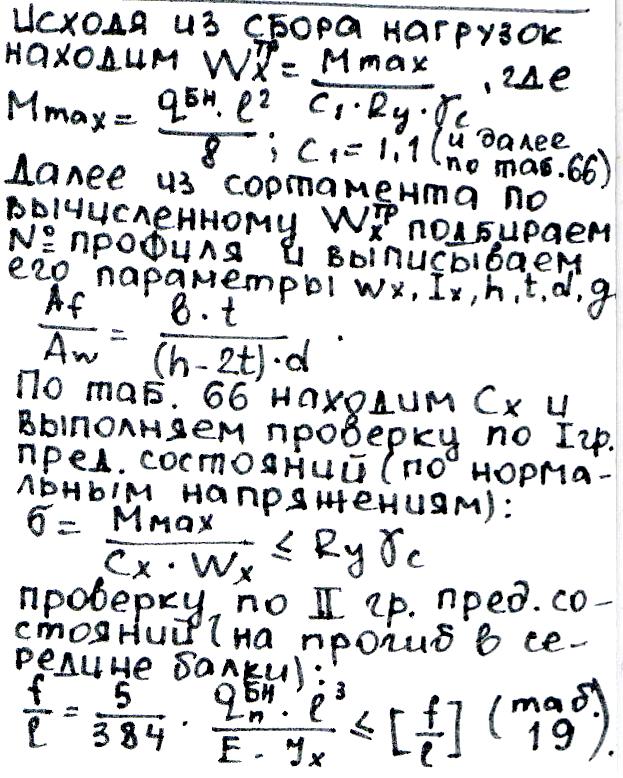 Исходя из сбора нагрузок
находим Wₓᵀᴾ = Mmax / (C₁ · Ry · γc) , где
Mmax = qᴮᴴ · ℓ² / 8 ; C₁ = 1,1 (и далее по таб. 66)
Далее из сортамента по
вычисленному Wₓᵀᴾ подбираем
№ профиля и выписываем
его параметры Wx, Ix, h, t, d, g
Af / Aw = b · t / (h - 2t) · d .
По таб. 66 находим Cx и
выполняем проверку по I гр.
пред. состояний (по норма-
льным напряжениям):
б = Mмах / (Cx · Wx) ≤ Ry γc
проверку по II гр. пред. со-
стояний (на прогиб в се-
редине балки):
f / ℓ = 5 / 384 · qₙᴮᴴ · ℓ³ / (E · Jx) ≤ [f / ℓ] (таб. 19).